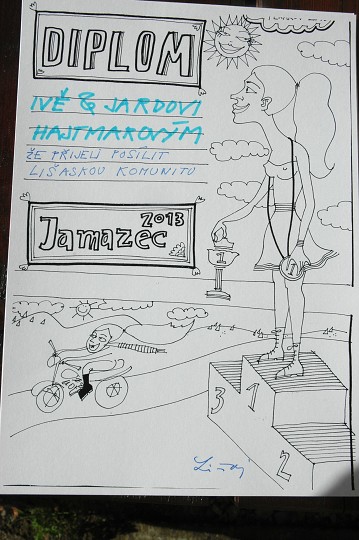 DIPLOM
IVĚ & JARDOVI
HAJTMAROVÝM
ŽE PŘIJELI POSÍLIT
LIŠÁSKOU KOMUNITU
2013
Jamazec
1
1
3 1
2